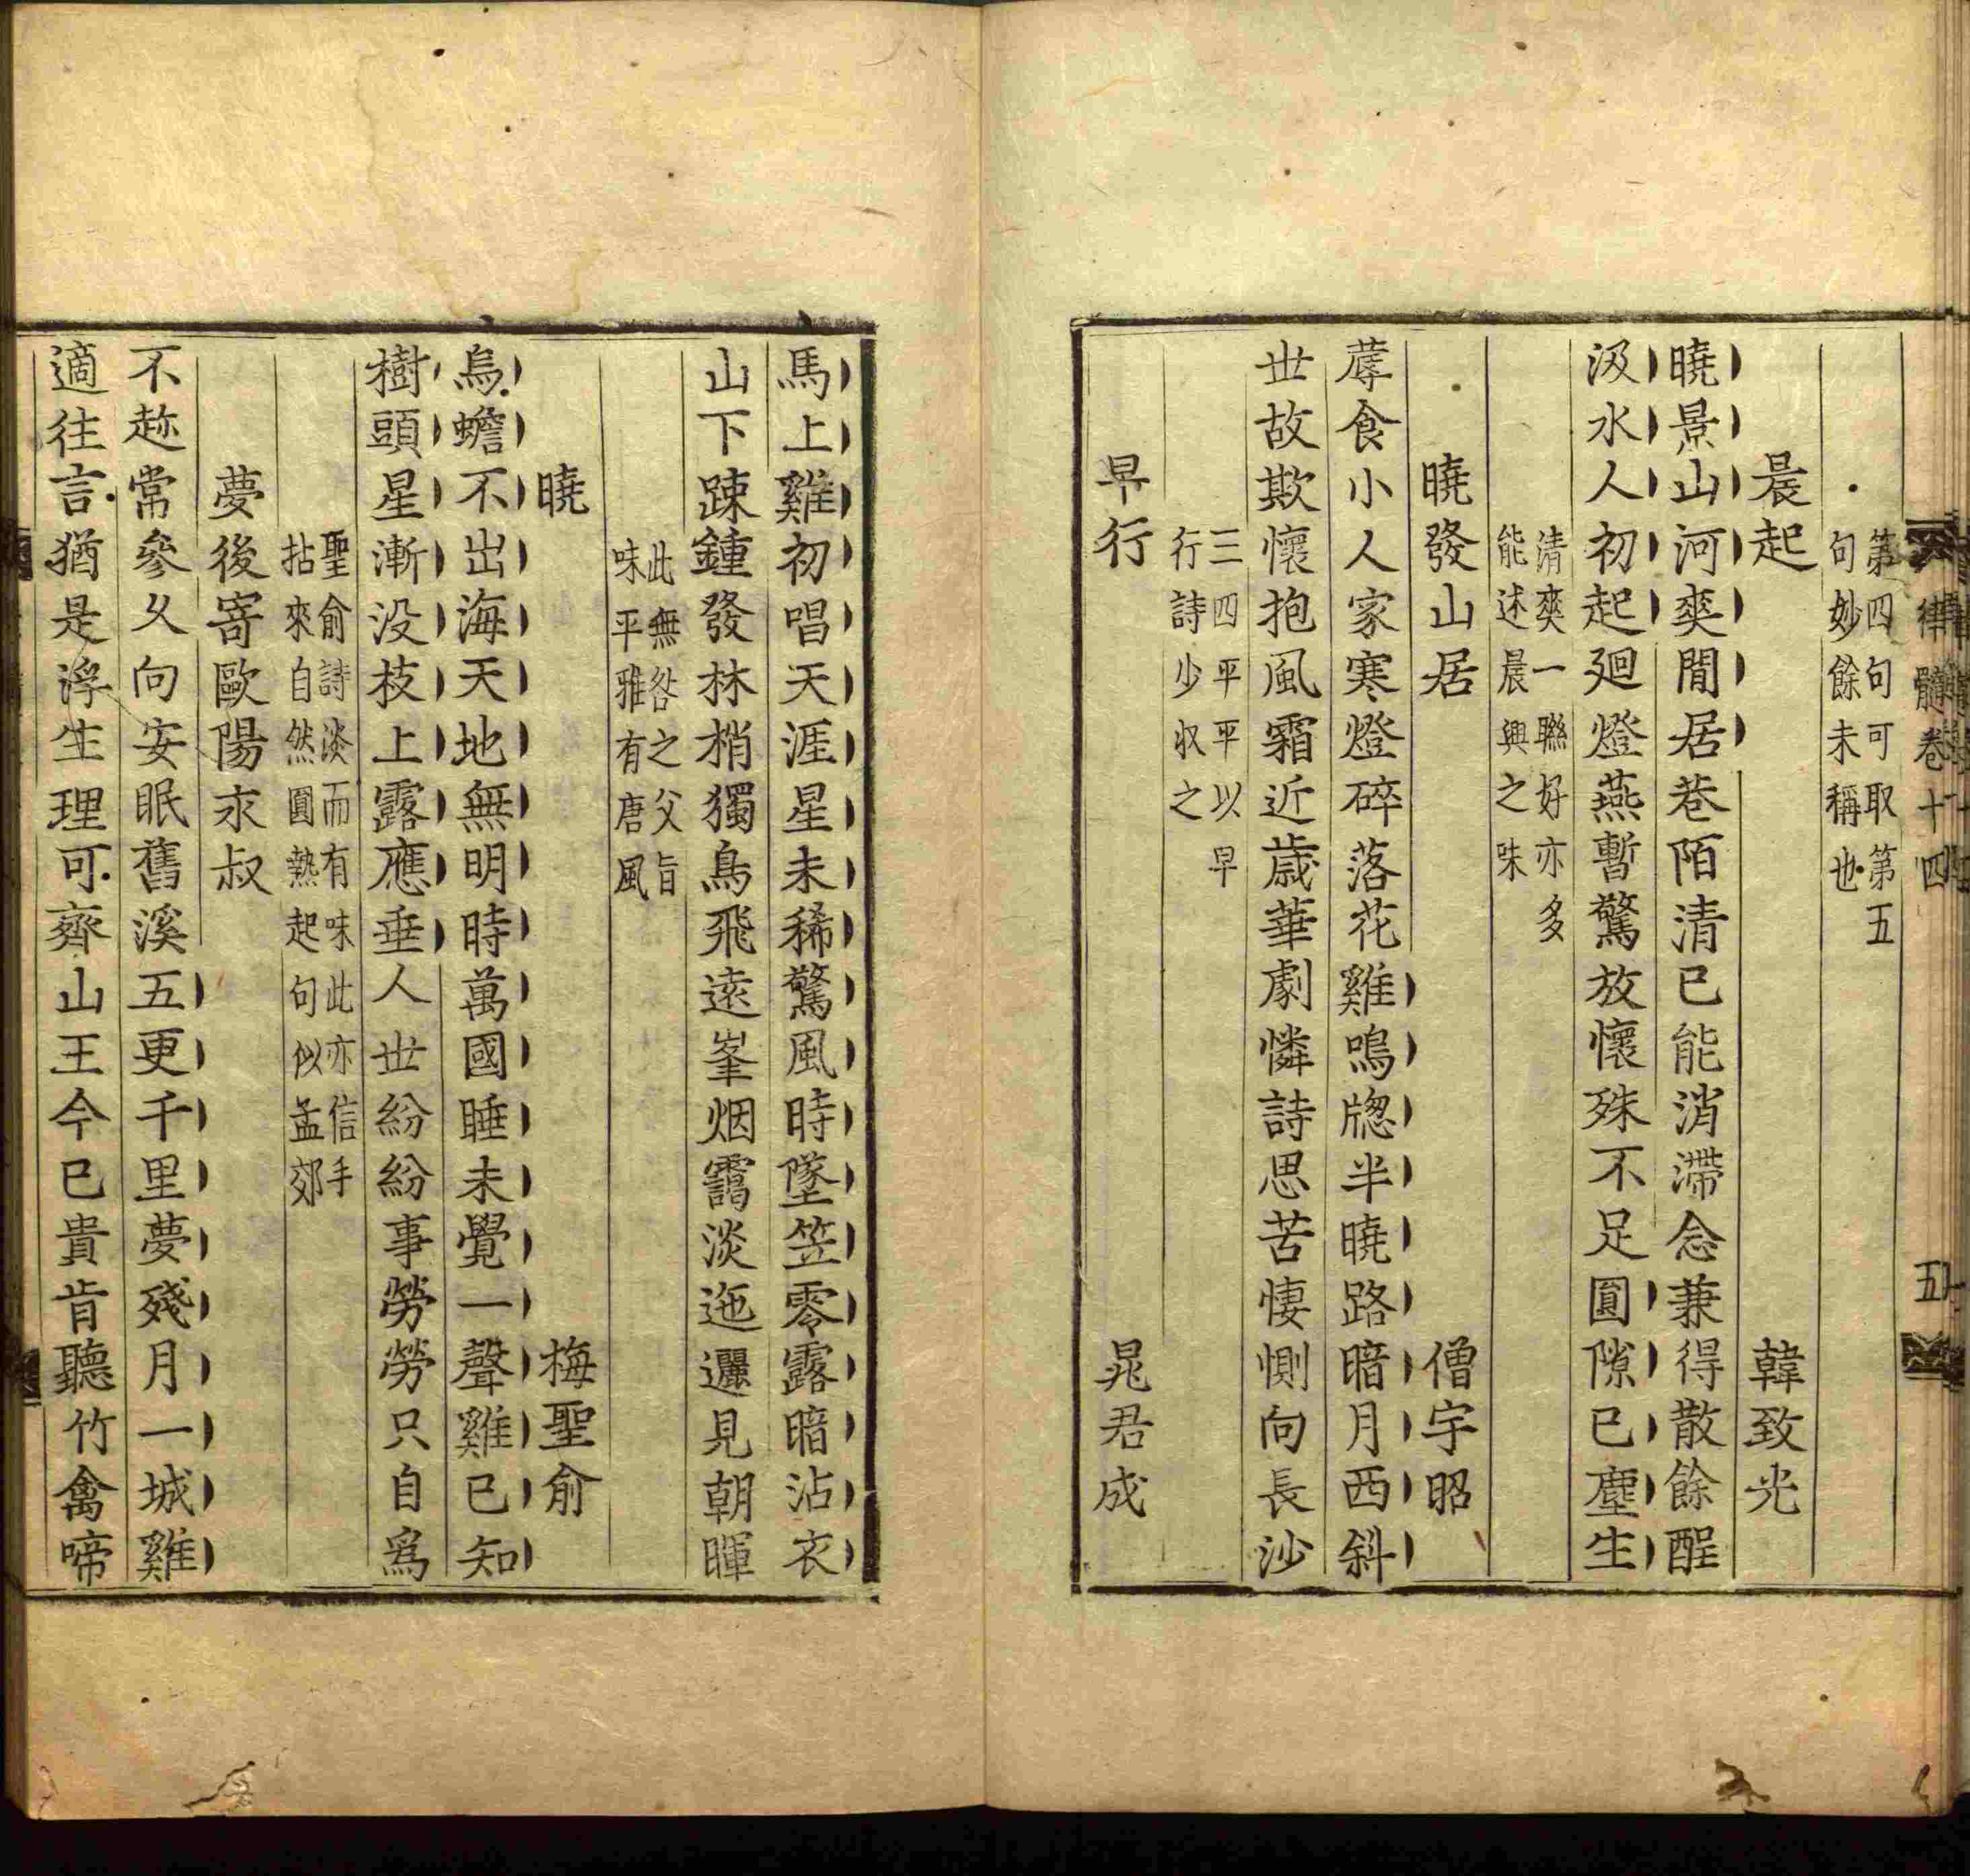 律髓卷十四
五
第四句可取第五
句妙餘未稱也
晨起 韓致光
曉景山河爽閒居巷陌清已能消滯念兼得散餘酲
汲水人初起廻燈燕暫驚放懷殊不足圓隙已塵生
清爽一聯好亦多
能述晨興之味
曉發山居 僧宇昭
蓐食小人家寒燈碎落花雞鳴牎半曉路暗月西斜
世故欺懷抱風霜近歲華劇憐詩思苦悽惻向長沙
三四平平以早
行詩少収之
早行 晁君成
馬上雞初唱天涯星未稀驚風時墜笠零露暗沾衣
山下踈鍾發林梢獨鳥飛遠峯烟靄淡迤邐見朝暉
此無咎之父旨
味平雅有唐風
曉 梅聖俞
烏蟾不出海天地無明時萬國睡未覺一聲雞已知
樹頭星漸没枝上露應垂人世紛紛事勞勞只自爲
聖俞詩淡而有味此亦信手
拈來自然圓熟起句似孟郊
夢後寄歐陽永叔
不趂常參乆向安眠舊溪五更千里夢殘月一城雞
適往言猶是浮生理可齊山王今已貴肯聽竹禽啼